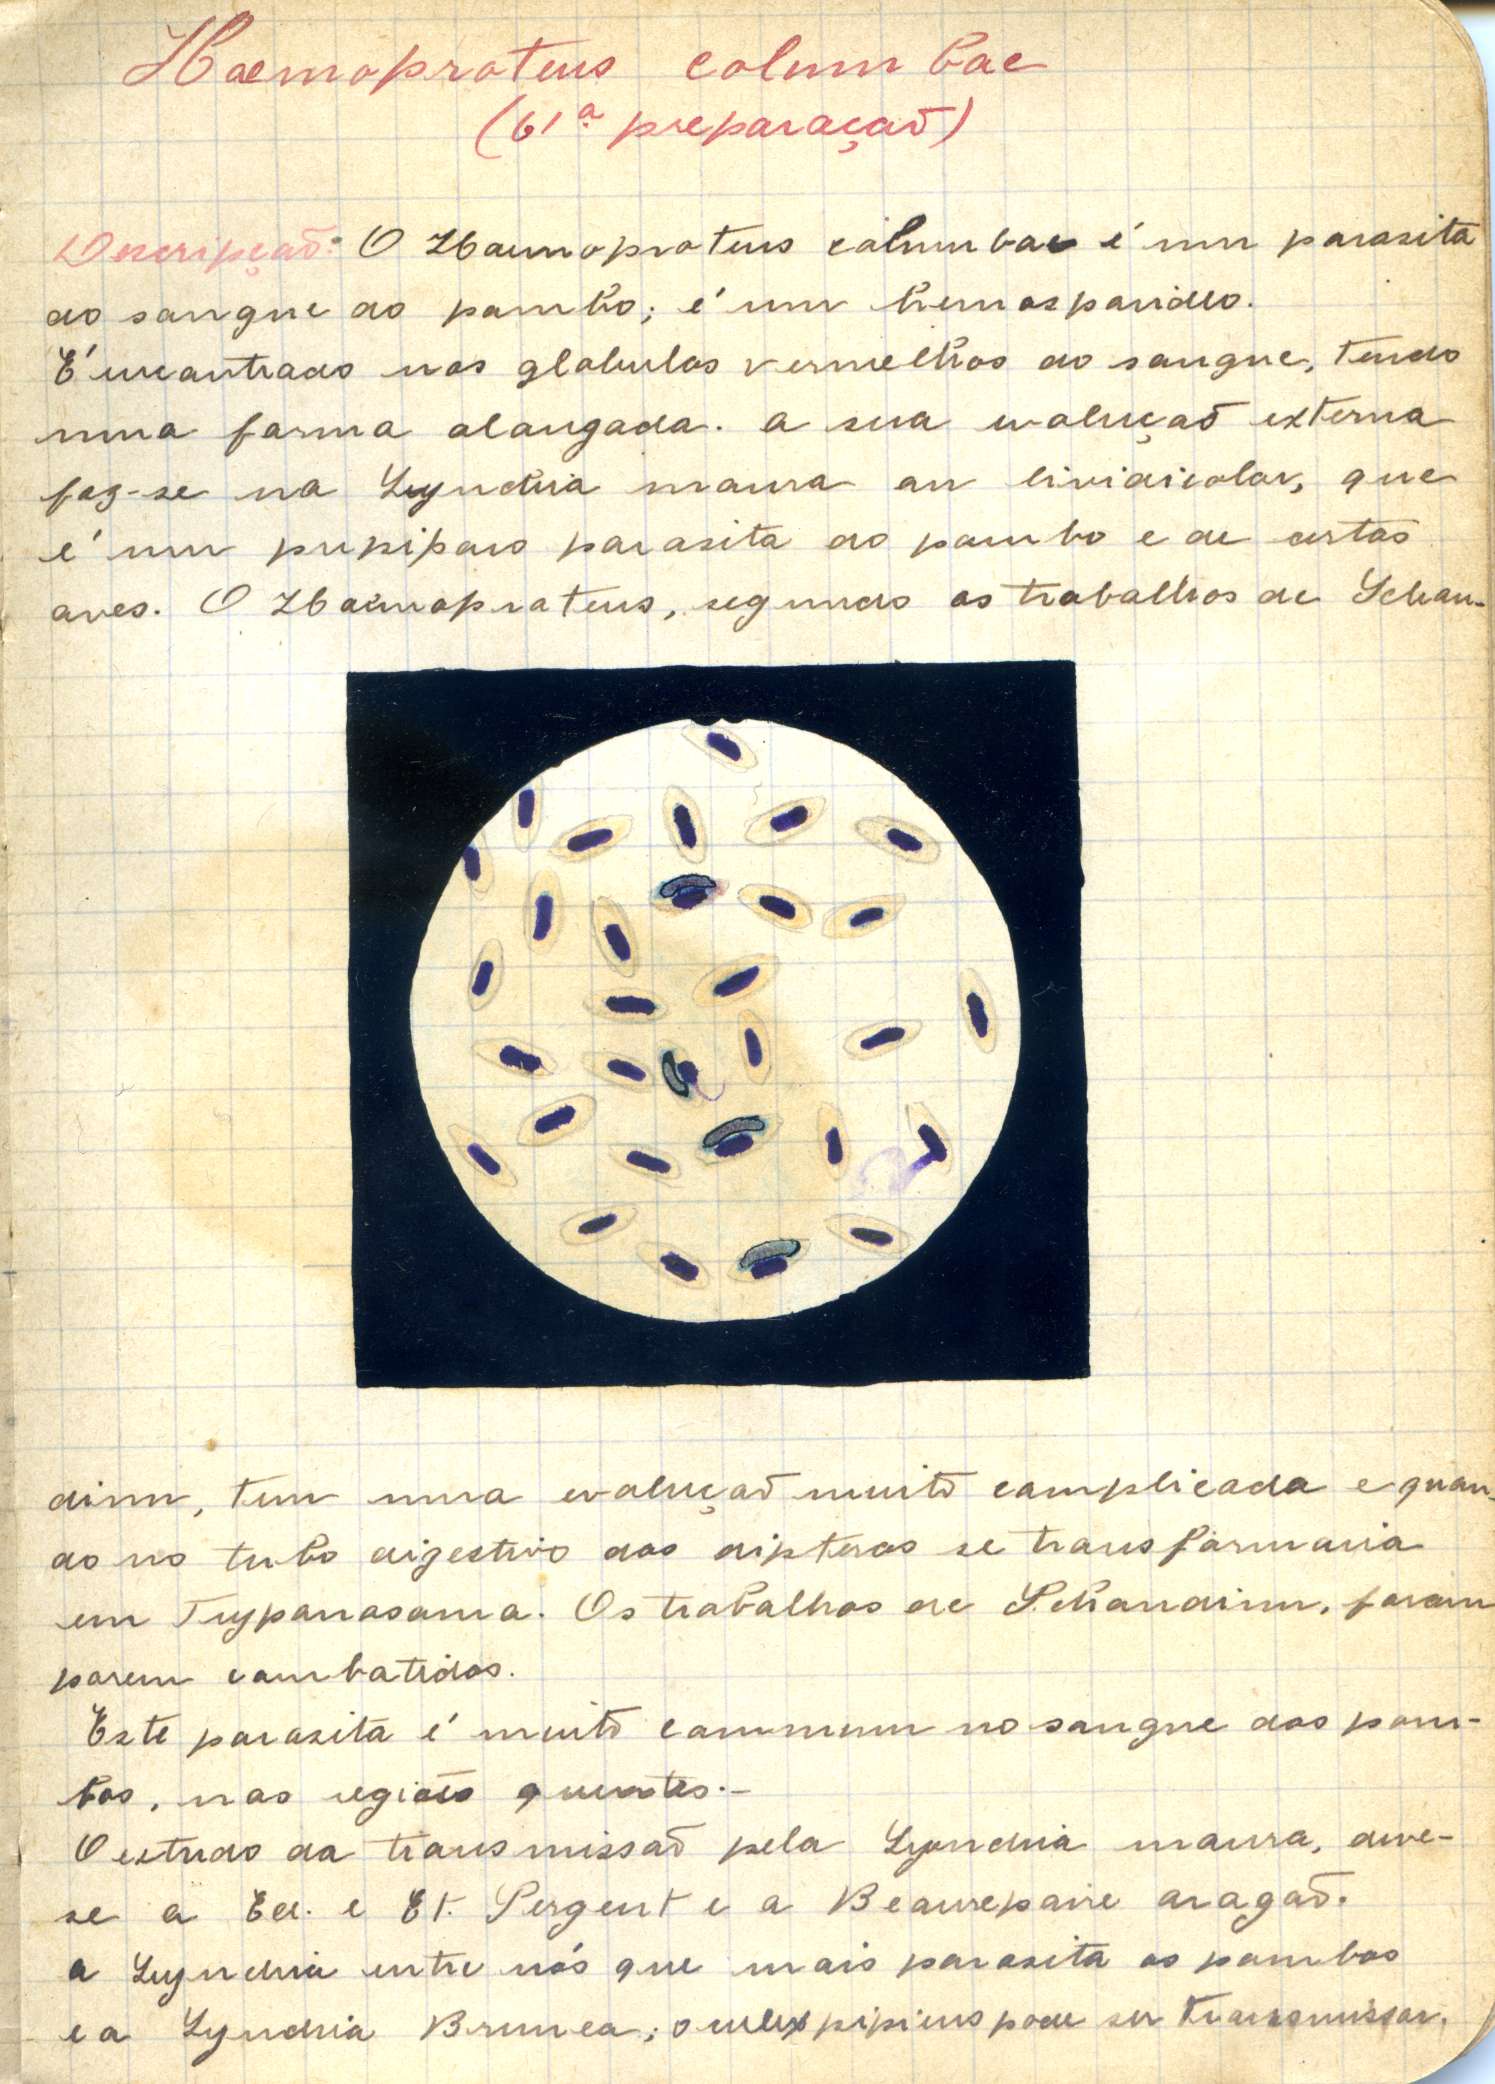 Haemoproteus columbae
(61ª preparação)
Descripção: O Haemoproteus columbae é um parasita
do sangue do pombo; é um hemosparideo.
É encontrado nos globulos vermelhos do sangue, tendo
uma forma alongada. A sua evolução externa
faz-se na Lynchia maura ou lividicolor, que
é um pupiparo parasita do pombo e de certas
aves. O Haemoproteus, segundo os trabalhos de Schau-
dinn, tem uma evolução muito complicada e quan-
do no tubo digestivo dos dipteros se transformaria
em Trypanosoma. Os trabalhos de Schaudinn, foram
porem combatidos.
Este parasita é muito commum no sangue dos pom-
bos, nas regiões quentes.-
O estudo da transmissão pela Lynchia maura, deve-
se a Ed. e Et. Sergent e a Beaurepaire Aragão.
A Lynchia entre nós que mais parasita os pombos
e a Lynchia Brunea; o culex pipiens pode ser transmissor.